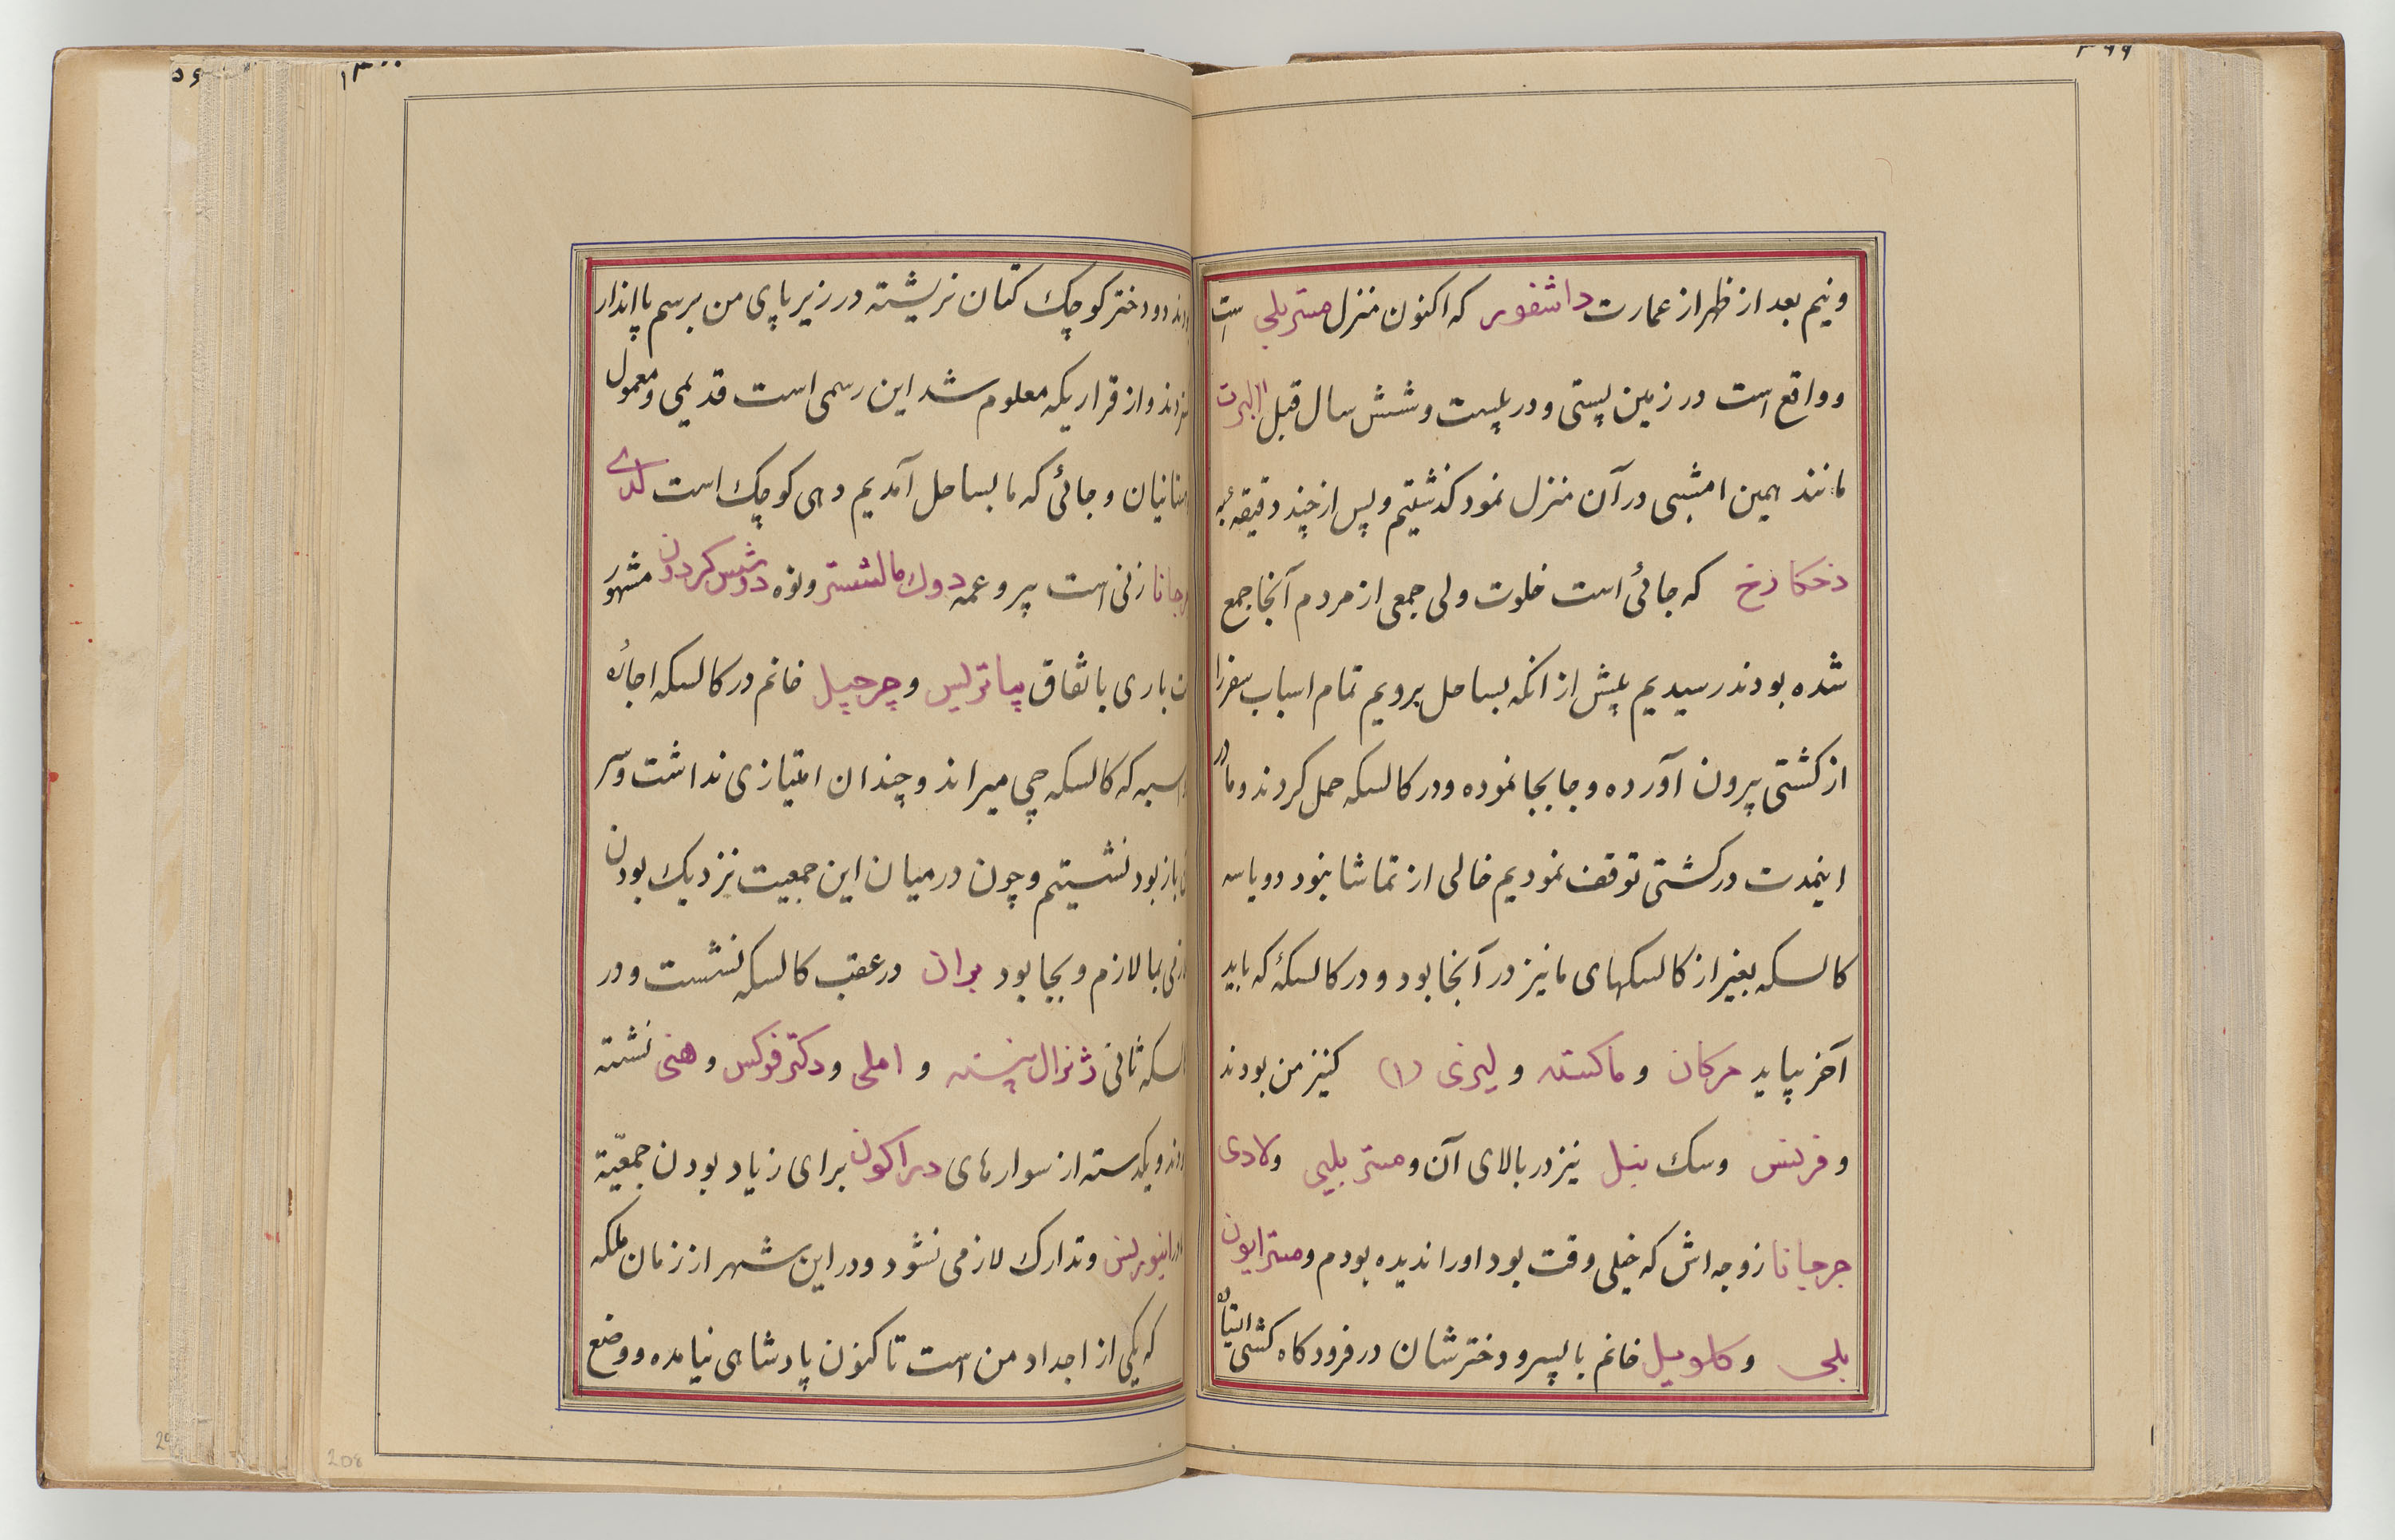 ۲۹۹
ونیم بعد از ظهر از عمارت داشفور که اکنون منزل مستر بلی است
و واقع است در زمین پستی و در بیست و شش سال قبل البرت
مانند همین امشبی در آن منزل نمود کذشتیم و پس از چند دقیقه به
ذحکارخ که جائی است خلوت ولی جمعی از مردم آنجا جمع
شده بودند رسیدیم پیش از انکه بساحل برویم تمام اسباب سفر را
از کشتی بیرون آورده و جابجا نموده و در کالسکه حمل کردند و ما در
اینمدت در کشتی توقف نمودیم خالی از تماشا نبود دو یا سه
کالسکه بغیر از کالسکهای ما نیز در آنجا بود و در کالسکهٔ که باید
آخر بیاید مرکان و ماکسته و لیزی (۱) کنیز من بودند
و فرنس و سک نبل نیز در بالای آن و مستر بلی و لادی
جرجیانا زوجه اش که خیلی وقت بود او را ندیده بودم و مستر ایون
بلی و کلویل خانم با پسر و دخترشان در فرودکاه کشتی ایستاده
۱۳۰۰
بودند دو دختر کوچک کتان نریشته در زیر پای من برسم پا انداز
میزدند و از قراریکه معلوم شد این رسمی است قدیمی و معمول
و جائی که ما بساحل آمدیم دهی کوچک است لدی
جرجیانا زنی است پیر و عمه دوک مالشستر و نوه دوشس کردون مشهور
باری باتفاق بیاتریس و چرچیل خانم در کالسکه اجاره
اسبه که کالسکه چی میراند و چندان امتیازی نداشت و سر
باز بود نشستیم و چون در میان این جمعیت نزدیک بودن
بما لازم و بجا بود بران در عقب کالسکه نشست و در
کالسکه ثانی ژنرال پنسنه و املی و دکتر فوکس و هنی نشسته
بودند و یکدسته از سوارهای دراکون برای زیاد بودن جمعیّة
در اینورنس و تدارک لازمی نشود و در این شهر از زمان ملکه
که یکی از اجداد من است تا کنون پادشاهی نیامده و وضع
208